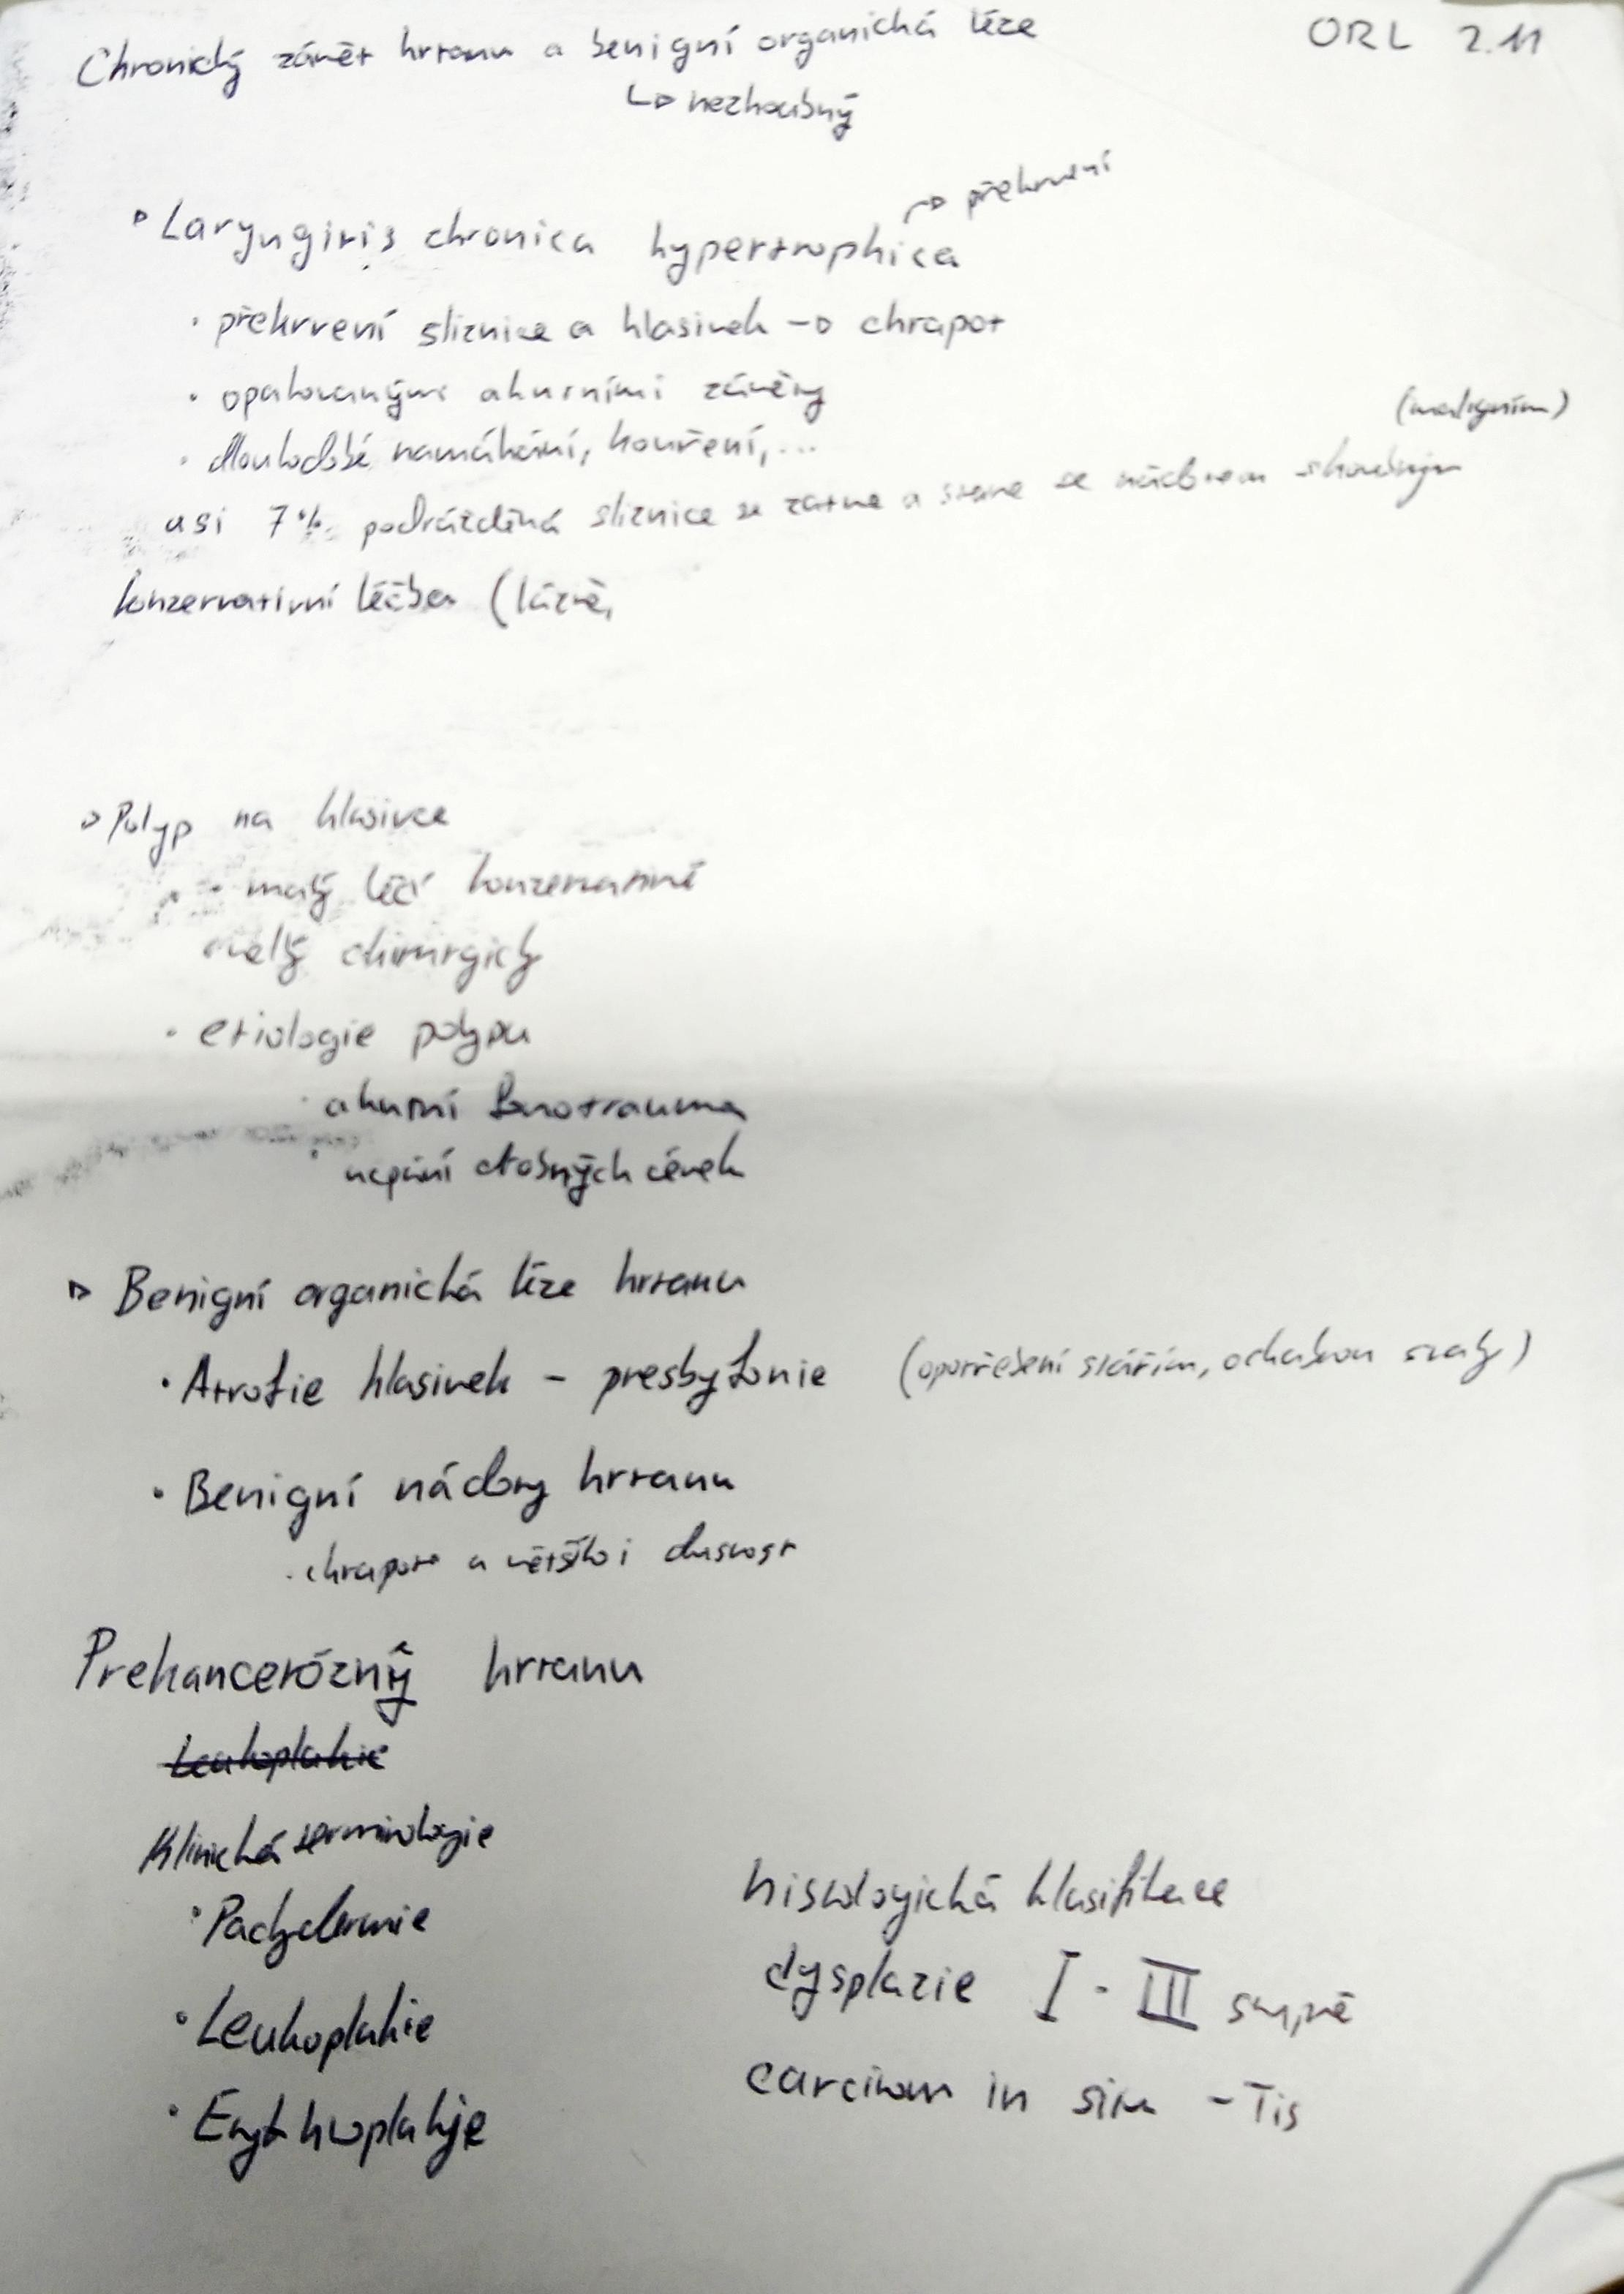 Chronický zánět hrtanu a benigní organická léze
ORL 2.11
↳ nezhoubný
→ překrvení
▹ Laryngitis chronica hypertrophica
· překrvení sliznice a hlasivek → chrapot
· opakovanými akutními záněty
· dlouhodobé namáhání, kouření,...
(maligním)
asi 7% podrážděná sliznice se zatne a stane se nádorem zhoubným
konzervativní léčba (lázně,
▹ Polyp na hlasivce
· malý léčí konzervativně
velký chirurgicky
· etiologie polypu
· akutní fonotrauma
· ucpání drobných cévek
▹ Benigní organická léze hrtanu
· Atrofie hlasivek - presbyfonie (opotřebení stářím, ochabnou svaly)
· Benigní nádory hrtanu
· chrapot a většího i dusnost
Prekancerózný hrtanu
Leukoplakie
Klinická terminologie
· Pachydermie
· Leukoplakie
· Erythroplakje
histologická klasifikace
dysplazie I - III stupně
carcinom in situ - Tis